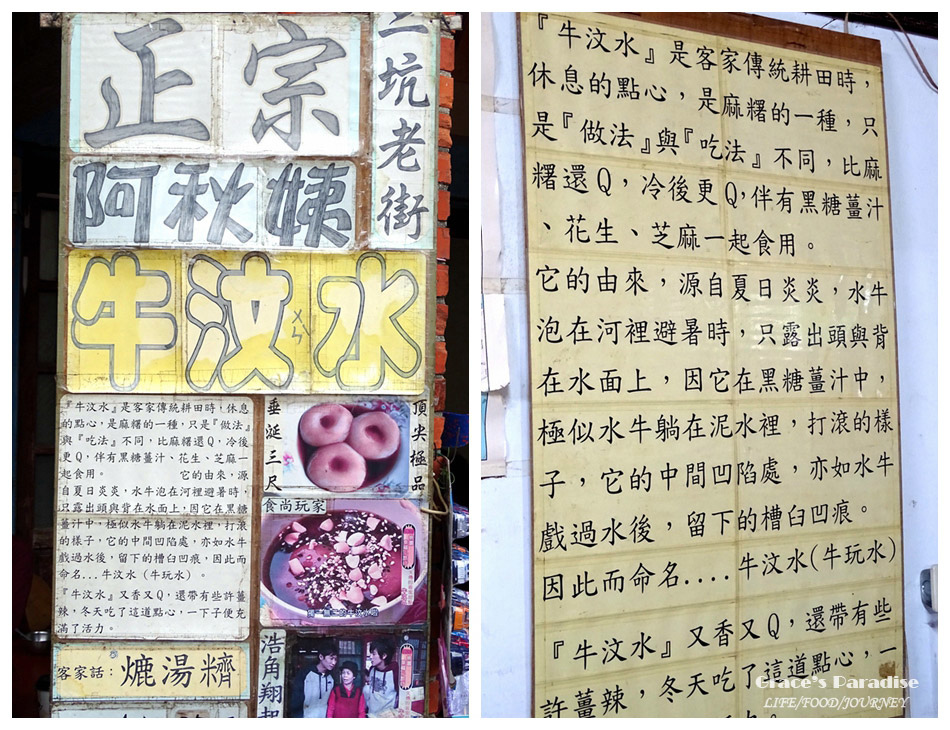 正宗
三坑老街
阿秋姨
牛汶水
ㄨㄣ
『牛汶水』是客家傳統耕田時，休息
的點心，是麻糬的一種，只是『做法』
與『吃法』不同，比麻糬還Q，冷後
更Q，伴有黑糖薑汁、花生、芝麻一
起食用。 它的由來，源
自夏日炎炎，水牛泡在河裡避暑時，
只露出頭與背在水面上，因它在黑糖
薑汁中，極似水牛躺在泥水裡，打滾
的樣子，它的中間凹陷處，亦如水牛
戲過水後，留下的槽臼凹痕，因此而
命名...牛汶水（牛玩水）。
『牛汶水』又香又Q，還帶有些許薑
辣，冬天吃了這道點心，一下子便充
滿了活力。
客家話：𤊶湯糍
垂涎三尺
頂尖極品
食尚玩家
浩角翔起
『牛汶水』是客家傳統耕田時，
休息的點心，是麻糬的一種，只
是『做法』與『吃法』不同，比麻
糬還Q，冷後更Q，伴有黑糖薑汁
、花生、芝麻一起食用。
它的由來，源自夏日炎炎，水牛
泡在河裡避暑時，只露出頭與背
在水面上，因它在黑糖薑汁中，
極似水牛躺在泥水裡，打滾的樣
子，它的中間凹陷處，亦如水牛
戲過水後，留下的槽臼凹痕。
因此而命名....牛汶水(牛玩水)
『牛汶水』又香又Q，還帶有些
許薑辣，冬天吃了這道點心，一
Grace's Paradise
LIFE/FOOD/JOURNEY